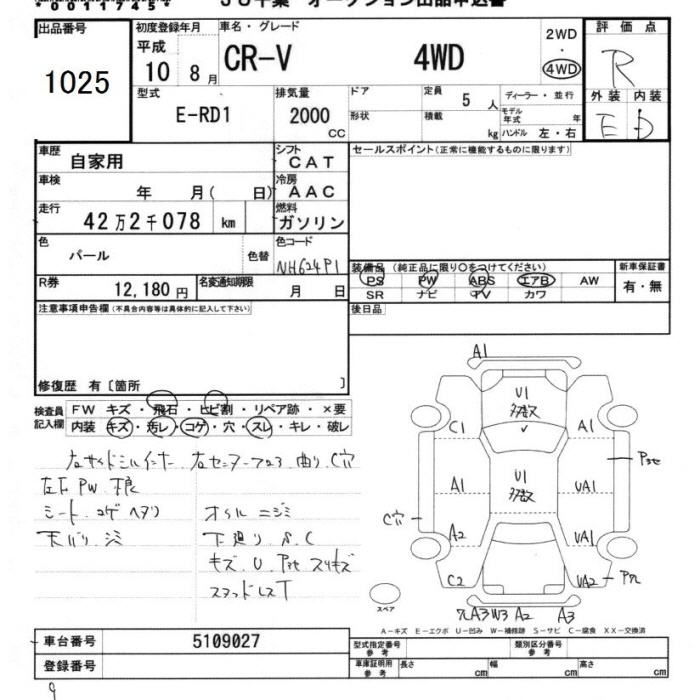 00117457
JU千葉 オークション出品申込書
出品番号 初度登録年月 車名・グレード 評価点
1025 平成 10 8月 CR-V 4WD 2WD・4WD R
型式 排気量 ドア 定員 5人 ディーラー・並行 外装 内装
E-RD1 2000 CC 形状 積載 kg モデル年式 年 ハンドル 左・右 E D
車歴 自家用 シフト CAT セールスポイント(正常に機能するものに限ります)
車検 年 月( 日) 冷房 AAC
走行 42万2千078 km 燃料 ガソリン
色 パール 色替 色コード NH624P1
装備品 (純正品に限り○をつけてください) 新車保証書
PS PW ABS エアB AW 有・無
SR ナビ TV カワ
R券 12,180円 名変通知期限 月 日
注意事項申告欄(不具合内容等は具体的に記入して下さい) 後日品
修復歴 有〔箇所 〕
検査員記入欄 FW キズ・飛石・ヒビ割・リペア跡・×要
内装 キズ・汚レ・コゲ・穴・スレ・キレ・破レ
左サイドシルインナー 左センターフロア 曲り C穴
左右PW 不良
シート コゲ ヘタリ オイル ニジミ
天バリ シミ 下廻り S.C
キズ U
A1
U1 多数
C1 A1
A1 U1 多数 UA1
C穴
A2 UA1
C2 UA2
A3 W3 A2 A3
スペア
A-キズ E-エクボ U-凹み W-補修跡 S-サビ C-腐食 XX-交換済
車台番号 5109027 型式指定番号 参考 類別区分番号 参考
登録番号 車庫証明用 参考 長さ cm 幅 cm 高さ cm
9